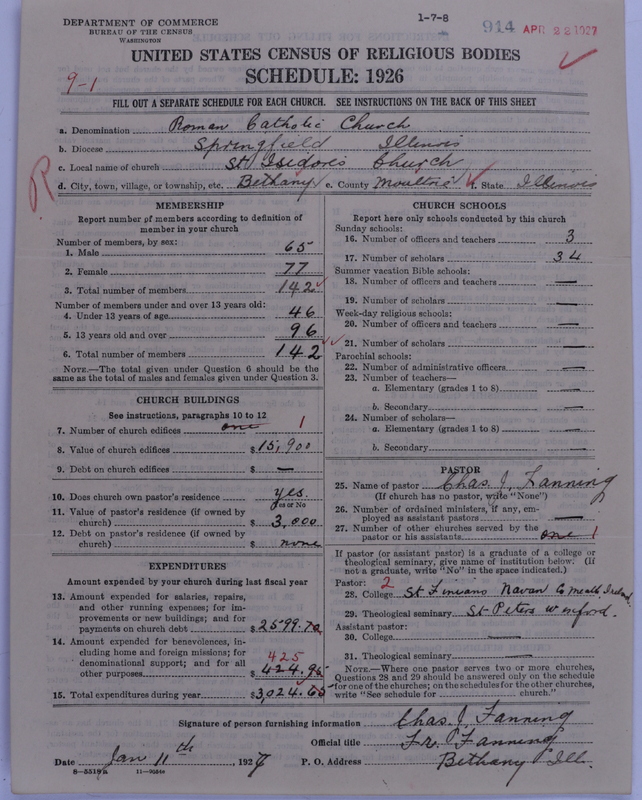 DEPARTMENT OF COMMERCE
BUREAU OF THE CENSUS
WASHINGTON
1-7-8
914 APR 22 1927
UNITED STATES CENSUS OF RELIGIOUS BODIES
SCHEDULE: 1926
9-1
FILL OUT A SEPARATE SCHEDULE FOR EACH CHURCH. SEE INSTRUCTIONS ON THE BACK OF THIS SHEET
a. Denomination Roman Catholic Church
b. Diocese Springfield Illinois
c. Local name of church St. Isidore's Church
d. City, town, village, or township, etc. Bethany e. County Moultrie f. State Illinois
R
MEMBERSHIP
Report number of members according to definition of member in your church
Number of members, by sex:
1. Male 65
2. Female 77
3. Total number of members 142
Number of members under and over 13 years old:
4. Under 13 years of age 46
5. 13 years old and over 96
6. Total number of members 142
NOTE.—The total given under Question 6 should be the same as the total of males and females given under Question 3.
CHURCH BUILDINGS
See instructions, paragraphs 10 to 12
7. Number of church edifices one 1
8. Value of church edifices $ 15,900
9. Debt on church edifices $ —
10. Does church own pastor's residence yes.
Yes or No
11. Value of pastor's residence (if owned by church) $ 3,000
12. Debt on pastor's residence (if owned by church) $ none
EXPENDITURES
Amount expended by your church during last fiscal year
13. Amount expended for salaries, repairs, and other running expenses; for improvements or new buildings; and for payments on church debt $ 2599.70
14. Amount expended for benevolences, including home and foreign missions; for denominational support; and for all other purposes 425 $ 424.95
15. Total expenditures during year $ 3,024.65
CHURCH SCHOOLS
Report here only schools conducted by this church
Sunday schools:
16. Number of officers and teachers 3
17. Number of scholars 34
Summer vacation Bible schools:
18. Number of officers and teachers —
19. Number of scholars —
Week-day religious schools:
20. Number of officers and teachers —
21. Number of scholars —
Parochial schools:
22. Number of administrative officers —
23. Number of teachers—
a. Elementary (grades 1 to 8) —
b. Secondary —
24. Number of scholars—
a. Elementary (grades 1 to 8) —
b. Secondary —
PASTOR
25. Name of pastor Chas. J. Fanning
(If church has no pastor, write "None")
26. Number of ordained ministers, if any, employed as assistant pastors —
27. Number of other churches served by the pastor or his assistants one 1
If pastor (or assistant pastor) is a graduate of a college or theological seminary, give name of institution below. (If not a graduate, write "No" in the space indicated.)
Pastor: 2
28. College St Finians Navan Co meath, Ireland.
29. Theological seminary St Peters Wexford.
Assistant pastor:
30. College —
31. Theological seminary —
NOTE.—Where one pastor serves two or more churches, Questions 28 and 29 should be answered only on the schedule for one of the churches; on the schedules for the other churches, write "See schedule for church."
Signature of person furnishing information Chas. J. Fanning
Official title Fr. Fanning
Date Jan 11th, 1927 P. O. Address Bethany Ill.
8—5518a 11—9054c